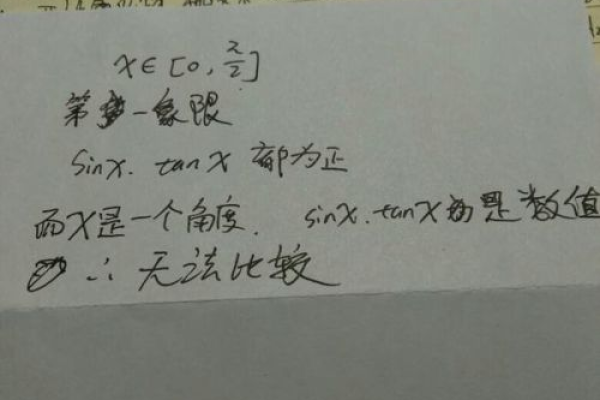 x∈[0,π/2]
第一象限
sinx. tanx 都为正
而x是一个角度. sinx.tanx 是数值
∴ 无法比较